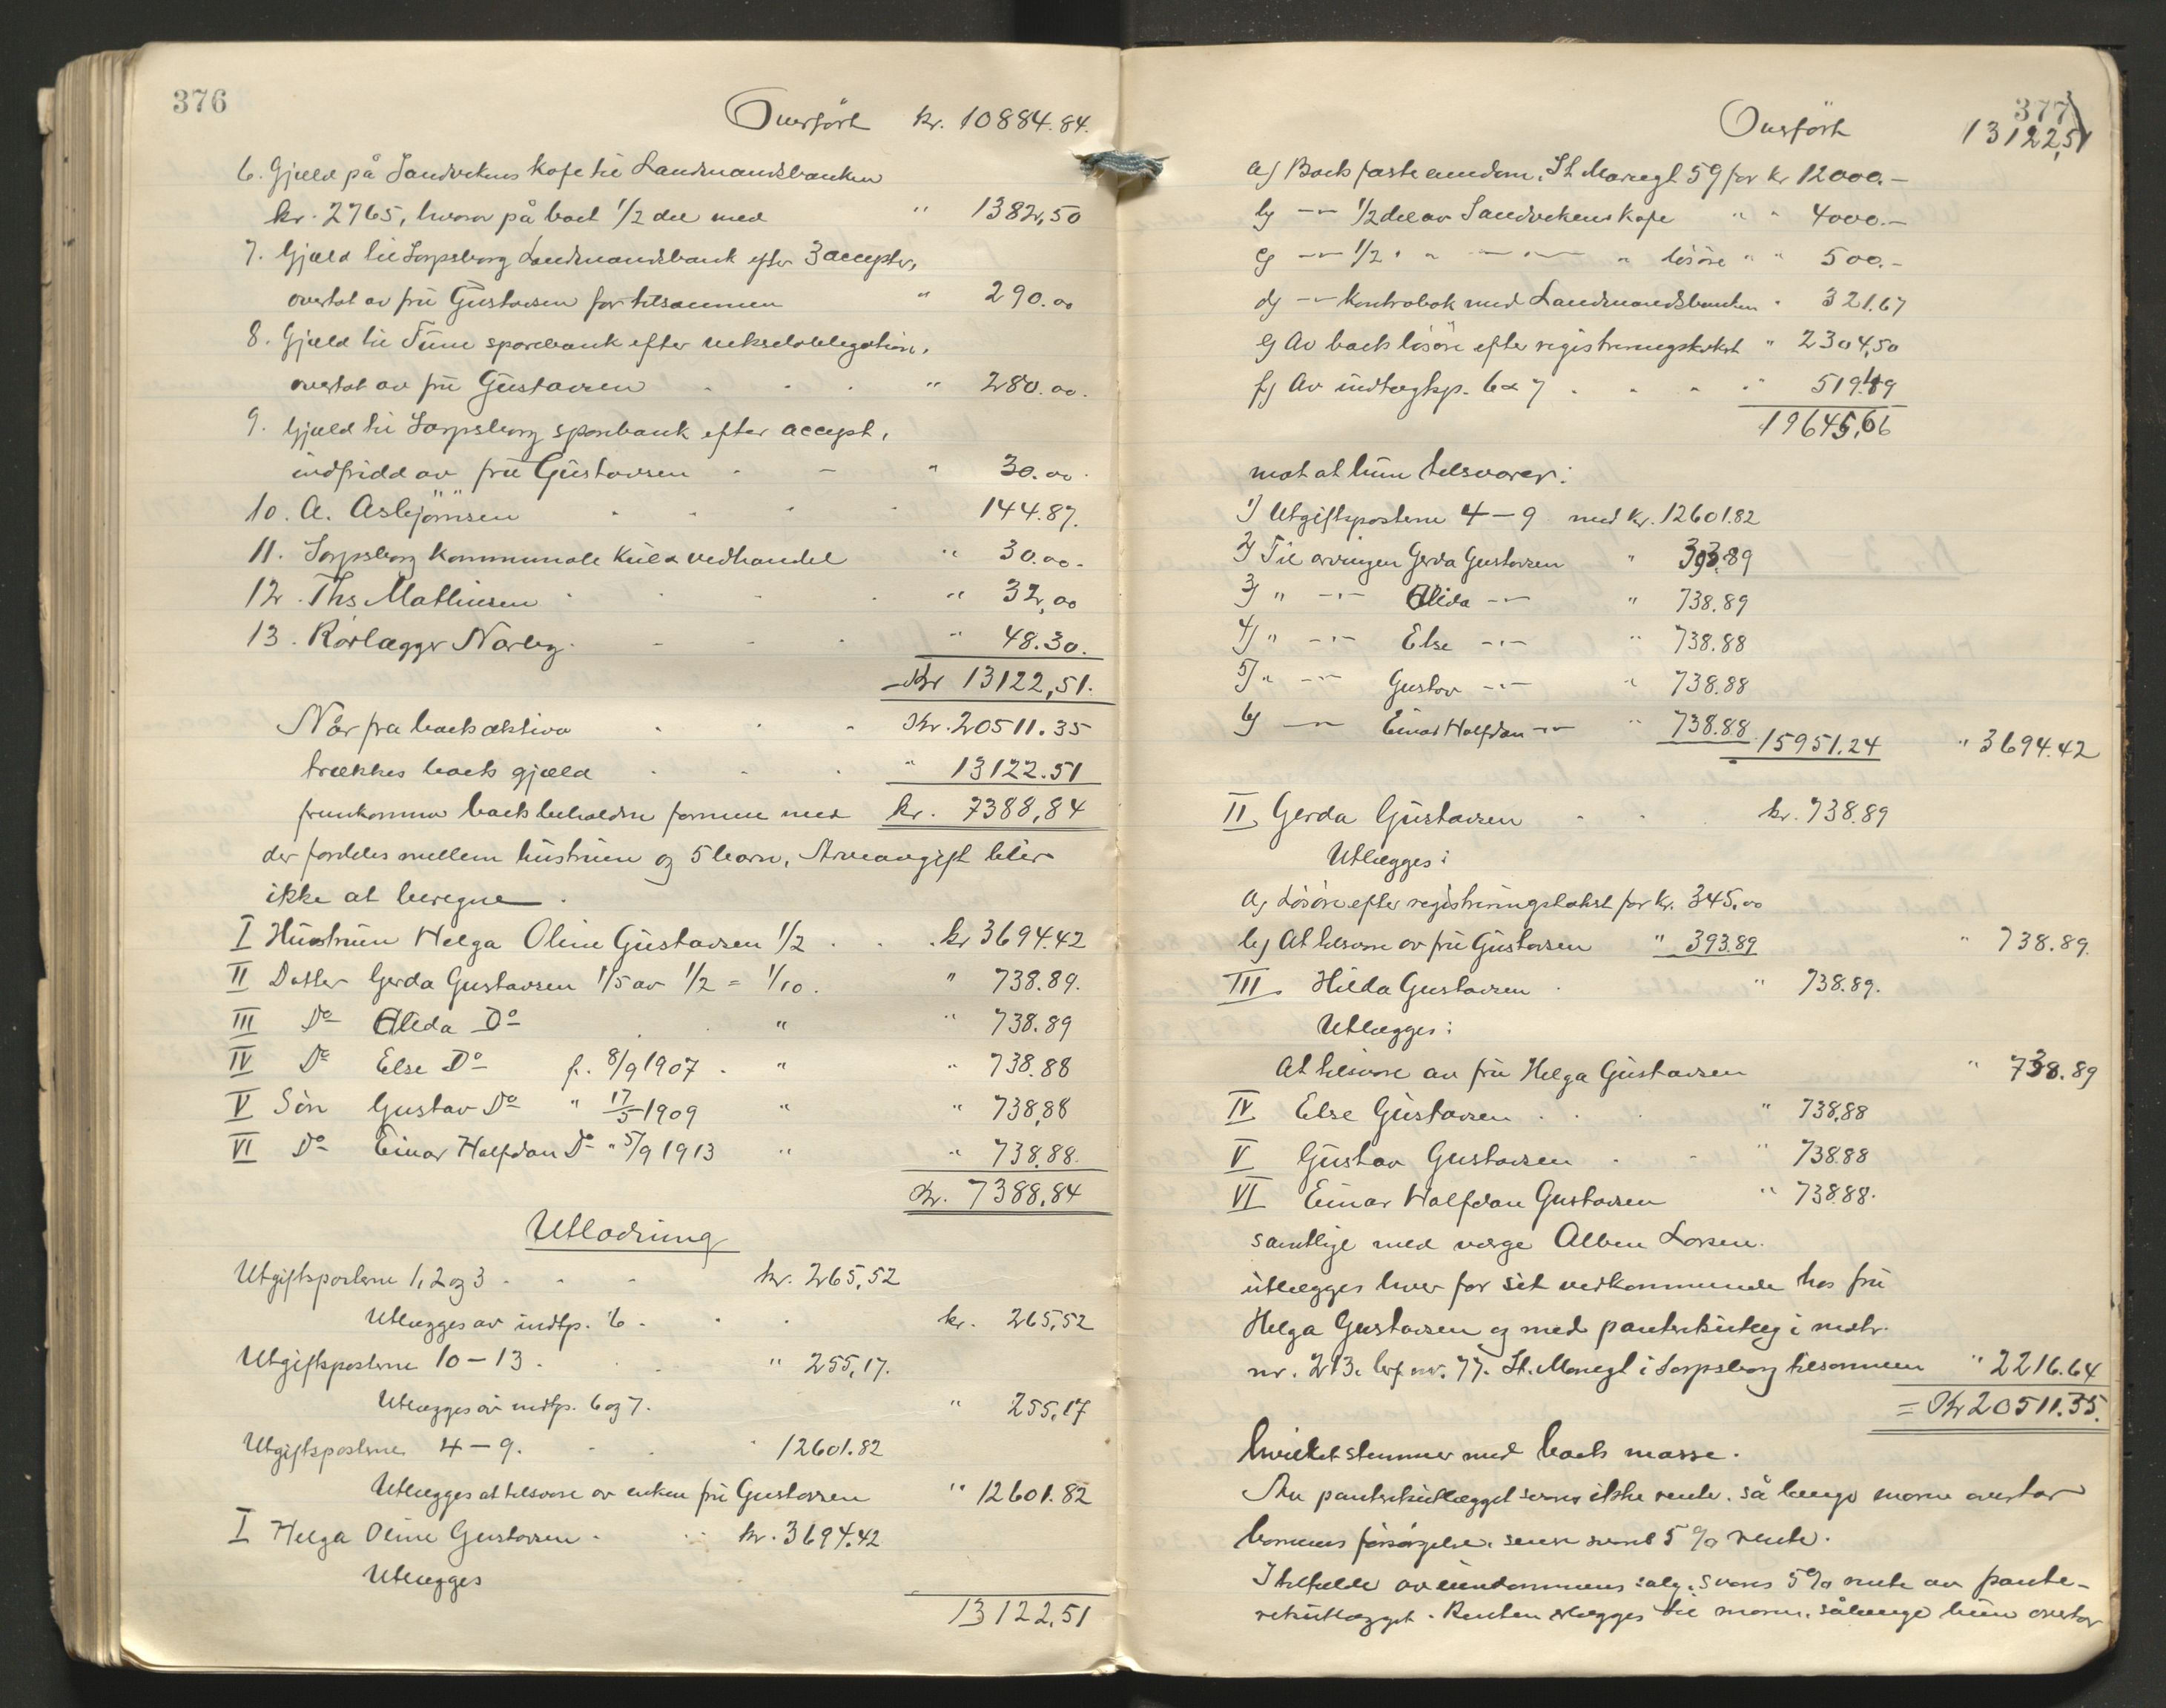 376
Overført kr. 10884.84.
6. Gjæld på Sandvikens kafe til Landmandsbanken
kr. 2765, hvorav på boet 1/2 del med " 1382,50
7. Gjæld til Sarpsborg Landmandsbank efter 3 accepter,
overtat av fru Gustavsen for tilsammen " 290.00
8. Gjæld til Tune sparebank efter vekselobligation,
overtat av fru Gustavsen . . . " 280.00.
9. Gjæld til Sarpsborg sparebank efter accept,
indfridd av fru Gustavsen - - " 30.00.
10. A. Asbjörnsen . . . . 144.87.
11. Sarpsborg kommunale kul & vedhandel " 30.00.
12. Ths Mathiesen . . . . " 32,00
13. Rörlægger Norby. - - . " 48.30.
Kr 13122,51.
Når fra boets aktiva . . . Kr. 20511.35
trækkes boets gjæld . . . " 13122.51
fremkommer boets beholdne formue med kr. 7388,84
der fordeles mellem hustruen og 5 barn. Arveavgift blir
ikke at beregne.
I Hustruen Helga Oline Gustavsen 1/2 . . . kr 3694.42
II Datter Gerda Gustavsen 1/5 av 1/2 = 1/10 . " 738.89.
III Do Hilda Do . . " " 738.89
IV Do Else Do f. 8/9 1907 . " " 738.88
V Sön Gustav Do " 17/5 1909 " " 738,88
VI Do Einar Halfdan Do " 5/9 1913 " " 738.88.
Kr. 7388,84
Utlodning
Utgiftsposterne 1, 2 og 3 . - - kr. 265,52
Utlægges av indtp. 6 . . . kr. 265,52
Utgiftsposterne 10-13 . . . " 255,17.
Utlægges av indtp. 6 og 7. " 255,17
Utgiftsposterne 4-9. . . " 12601.82
Utlægges at tilsvare av enken fru Gustavsen " 12601.82
I Helga Oline Gustavsen . . kr. 3694,42
Utlægges
13122,51
377
Overført 13122,51
a) Boets faste eiendom, St. Mariegt 59 for kr 12000.-
b) -"- 1/2 del av Sandvikens kafe " " 4000.-
c) -"- 1/2 " " -"- -"- " lösöre " " 500.-
d) -"- kontrabok med Landmandsbanken " 321.67
e) Av boets lösöre efter registreringstakst " 2304,50
f) Av indtægtsp. 6 & 7 . . . " 519.49
19645,66
mot at hun tilsvarer:
1) Utgiftsposterne 4-9 med kr. 12601.82
2) Til arvingen Gerda Gustavsen " 393.89
3) " -"- Hilda -"- " 738.89
4) " -"- Else -"- " 738.88
5) " -"- Gustav -"- " 738.88
6) -"- Einar Halfdan -"- " 738.88 15951.24 " 3694.42
II Gerda Gustavsen . . kr. 738.89
Utlægges:
a) Lösöre efter registreringstakst for kr. 345,00
b) At tilsvare av fru Gustavsen " 393.89 " 738.89.
III Hilda Gustavsen . " 738.89.
Utlægges:
At tilsvare av fru Helga Gustavsen " 738.89
IV Else Gustavsen . . . " 738,88
V Gustav Gustavsen . - " 738.88
VI Einar Halfdan Gustavsen " 738.88.
samtlige med verge Alben Larsen.
utlægges hver for sit vedkommende hos fru
Helga Gustavsen og med panterutlæg i matr.
nr. 213. br.nr. 77. St. Mariegt i Sarpsborg tilsammen " 2216.64
= Kr 20511.35.
hvilket stemmer med boets masse.
Av panteretsutlægget svares ikke rente, så længe moren overtar
barnens forsørgelse, senere svares 5 % rente.
I tilfælde av eiendommens salg, svares 5% rente av pante-
retsutlægget. Renten erlægges til moren, sålænge hun overtar